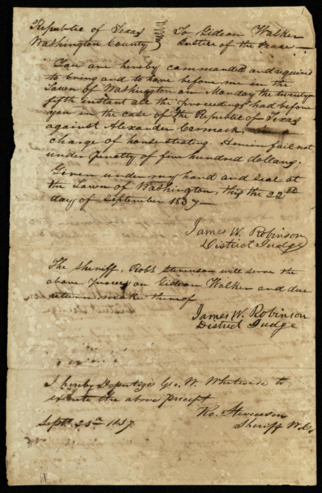 Republic of Texas } To Gideon Walker
Washington County } Justice of the Peace
You are hereby commanded and required
to bring and to have before me in the
Town of Washington on Monday the twenty
fifth instant all the proceedings had before
you in the case of the Republic of Texas
against Alexander Cormack
charge of horse stealing. Herein fail not
under penalty of five hundred dollars.
Given under my hand and seal at
the Town of Washington, this the 22nd
day of September 1837—
James W. Robinson
District Judge
The Sheriff, Robt Stevenson will serve the
above process on Gideon Walker and due
return make thereof
James W. Robinson
District Judge
I hereby Deputize Geo. W.
to
execute the above precept
Ro. Stevenson
Sheriff W.
Septr 23rd 1837